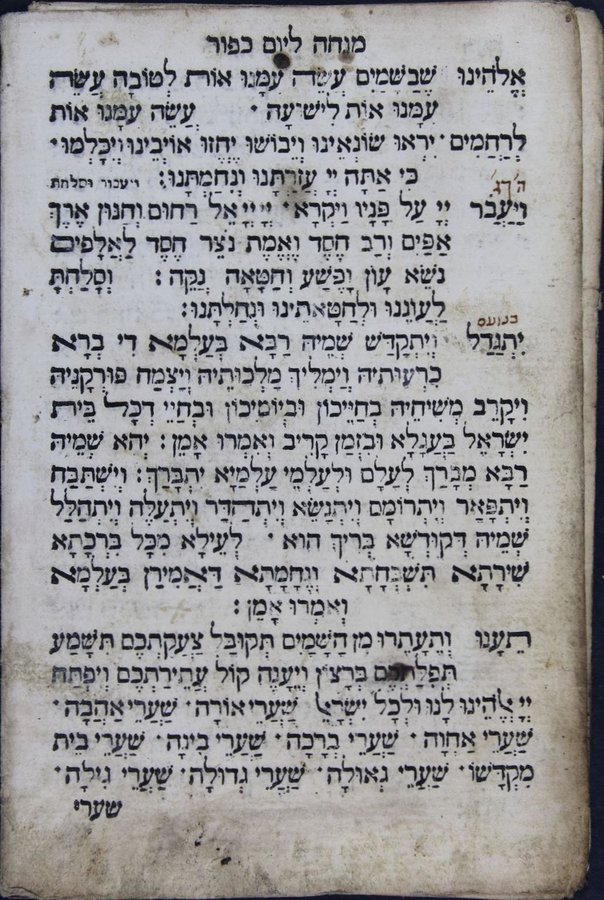 מנחה ליום כפור
אֱלֹהֵינוּ שֶׁבַּשָּׁמַיִם עֲשֵׂה עִמָּנוּ אוֹת לְטוֹבָה עֲשֵׂה
עִמָּנוּ אוֹת לִישׁוּעָה · עֲשֵׂה עִמָּנוּ אוֹת
לְרַחֲמִים · יִרְאוּ שׂוֹנְאֵינוּ וְיֵבוֹשׁוּ יֶחֱזוּ אוֹיְבֵינוּ וְיִכָּלְמוּ ·
כִּי אַתָּה יְיָ עֲזַרְתָּנוּ וְנִחַמְתָּנוּ: ויעבור וסלחת
וַיַּעֲבֹר יְיָ עַל פָּנָיו וַיִּקְרָא · יְיָ יְיָ אֵל רַחוּם וְחַנּוּן אֶרֶךְ
אַפַּיִם וְרַב חֶסֶד וֶאֱמֶת נֹצֵר חֶסֶד לַאֲלָפִים
נֹשֵׂא עָוֹן וָפֶשַׁע וְחַטָּאָה וְנַקֵּה: וְסָלַחְתָּ
לַעֲוֹנֵנוּ וּלְחַטָּאתֵינוּ וּנְחַלְתָּנוּ:
בנועם
יִתְגַּדַּל וְיִתְקַדַּשׁ שְׁמֵיהּ רַבָּא בְּעָלְמָא דִּי בְרָא
כִרְעוּתֵיהּ וְיַמְלִיךְ מַלְכוּתֵיהּ וְיַצְמַח פּוּרְקָנֵיהּ
וִיקָרֵב מְשִׁיחֵיהּ בְּחַיֵּיכוֹן וּבְיוֹמֵיכוֹן וּבְחַיֵּי דְכָל בֵּית
יִשְׂרָאֵל בַּעֲגָלָא וּבִזְמַן קָרִיב וְאִמְרוּ אָמֵן: יְהֵא שְׁמֵיהּ
רַבָּא מְבָרַךְ לְעָלַם וּלְעָלְמֵי עָלְמַיָּא יִתְבָּרַךְ: וְיִשְׁתַּבַּח
וְיִתְפָּאַר וְיִתְרוֹמַם וְיִתְנַשֵּׂא וְיִתְהַדַּר וְיִתְעַלֶּה וְיִתְהַלַּל
שְׁמֵיהּ דְּקוּדְשָׁא בְּרִיךְ הוּא · לְעֵילָא מִכָּל בִּרְכָתָא
שִׁירָתָא תִּשְׁבְּחָתָא וְנֶחָמָתָא דַּאֲמִירָן בְּעָלְמָא
וְאִמְרוּ אָמֵן:
תֵּעָנוּ וְתֵעָתְרוּ מִן הַשָּׁמַיִם תְּקוּבַּל צַעֲקַתְכֶם תִּשָּׁמַע
תְּפִלַּתְכֶם בְּרָצוֹן וְיֵעָנֶה קוֹל עֲתִירַתְכֶם וְיִפְתַּח
יְיָ אֱלֹהֵינוּ לָנוּ וּלְכָל יִשְׂרָאֵל שַׁעֲרֵי אוֹרָה · שַׁעֲרֵי אַהֲבָה ·
שַׁעֲרֵי אַחְוָה · שַׁעֲרֵי בְרָכָה · שַׁעֲרֵי בִינָה · שַׁעֲרֵי בֵית
מִקְדָּשׁוֹ · שַׁעֲרֵי גְאוּלָּה · שַׁעֲרֵי גְדוּלָּה · שַׁעֲרֵי גִילָה ·
שערי